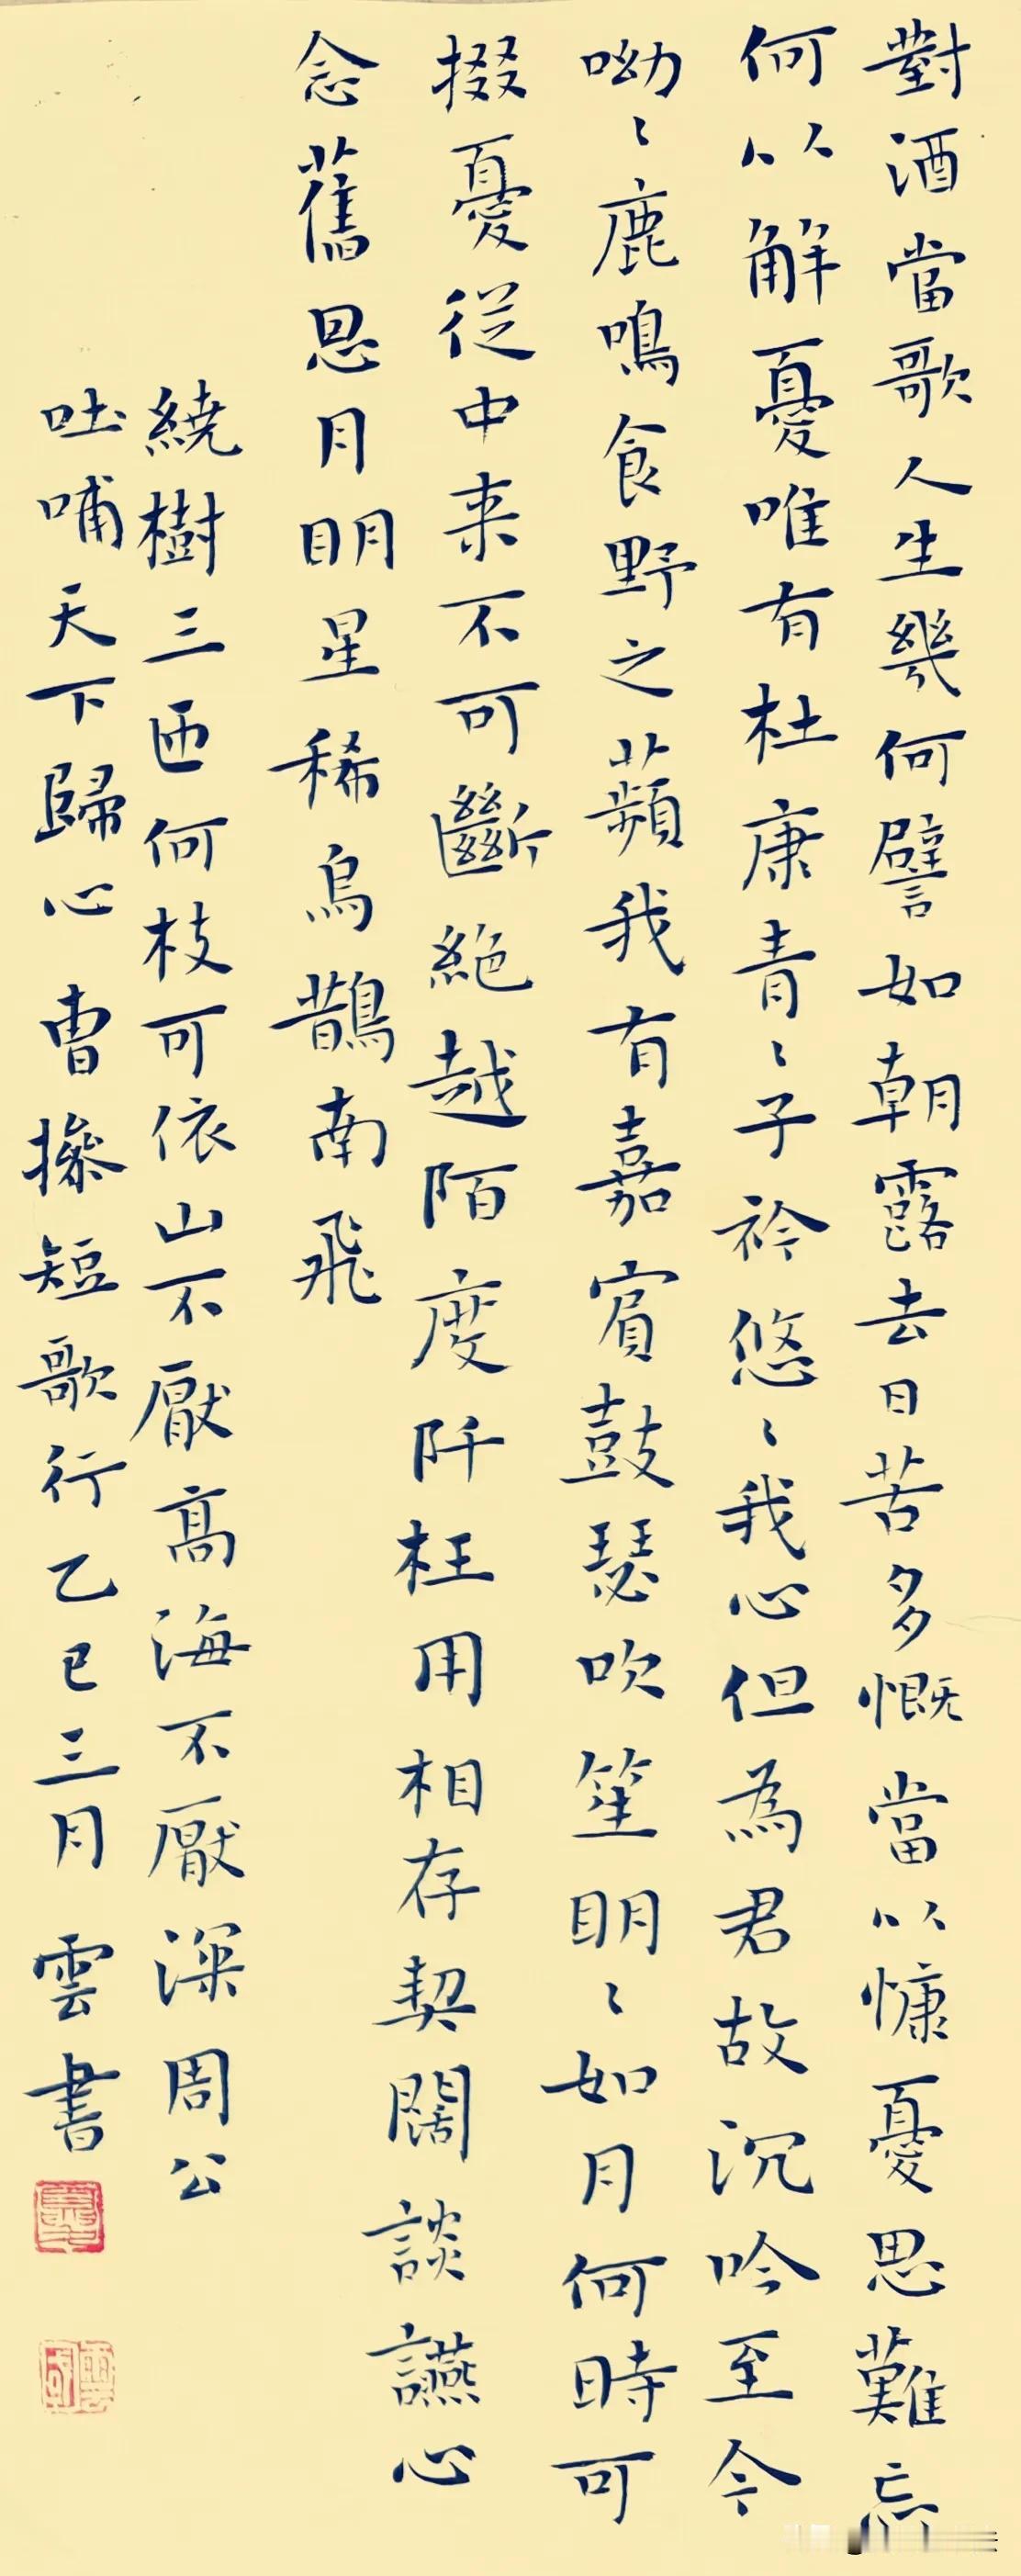 對酒當歌人生幾何譬如朝露去日苦多慨當以慷憂思難忘
何以解憂唯有杜康青〻子衿悠〻我心但為君故沉吟至今
呦〻鹿鳴食野之蘋我有嘉賓鼓瑟吹笙明〻如月何時可
掇憂從中来不可斷絕越陌度阡枉用相存契闊談讌心
念舊恩月明星稀烏鵲南飛
繞樹三匝何枝可依山不厭高海不厭深周公
吐哺天下歸心 曹操短歌行乙巳三月雲書